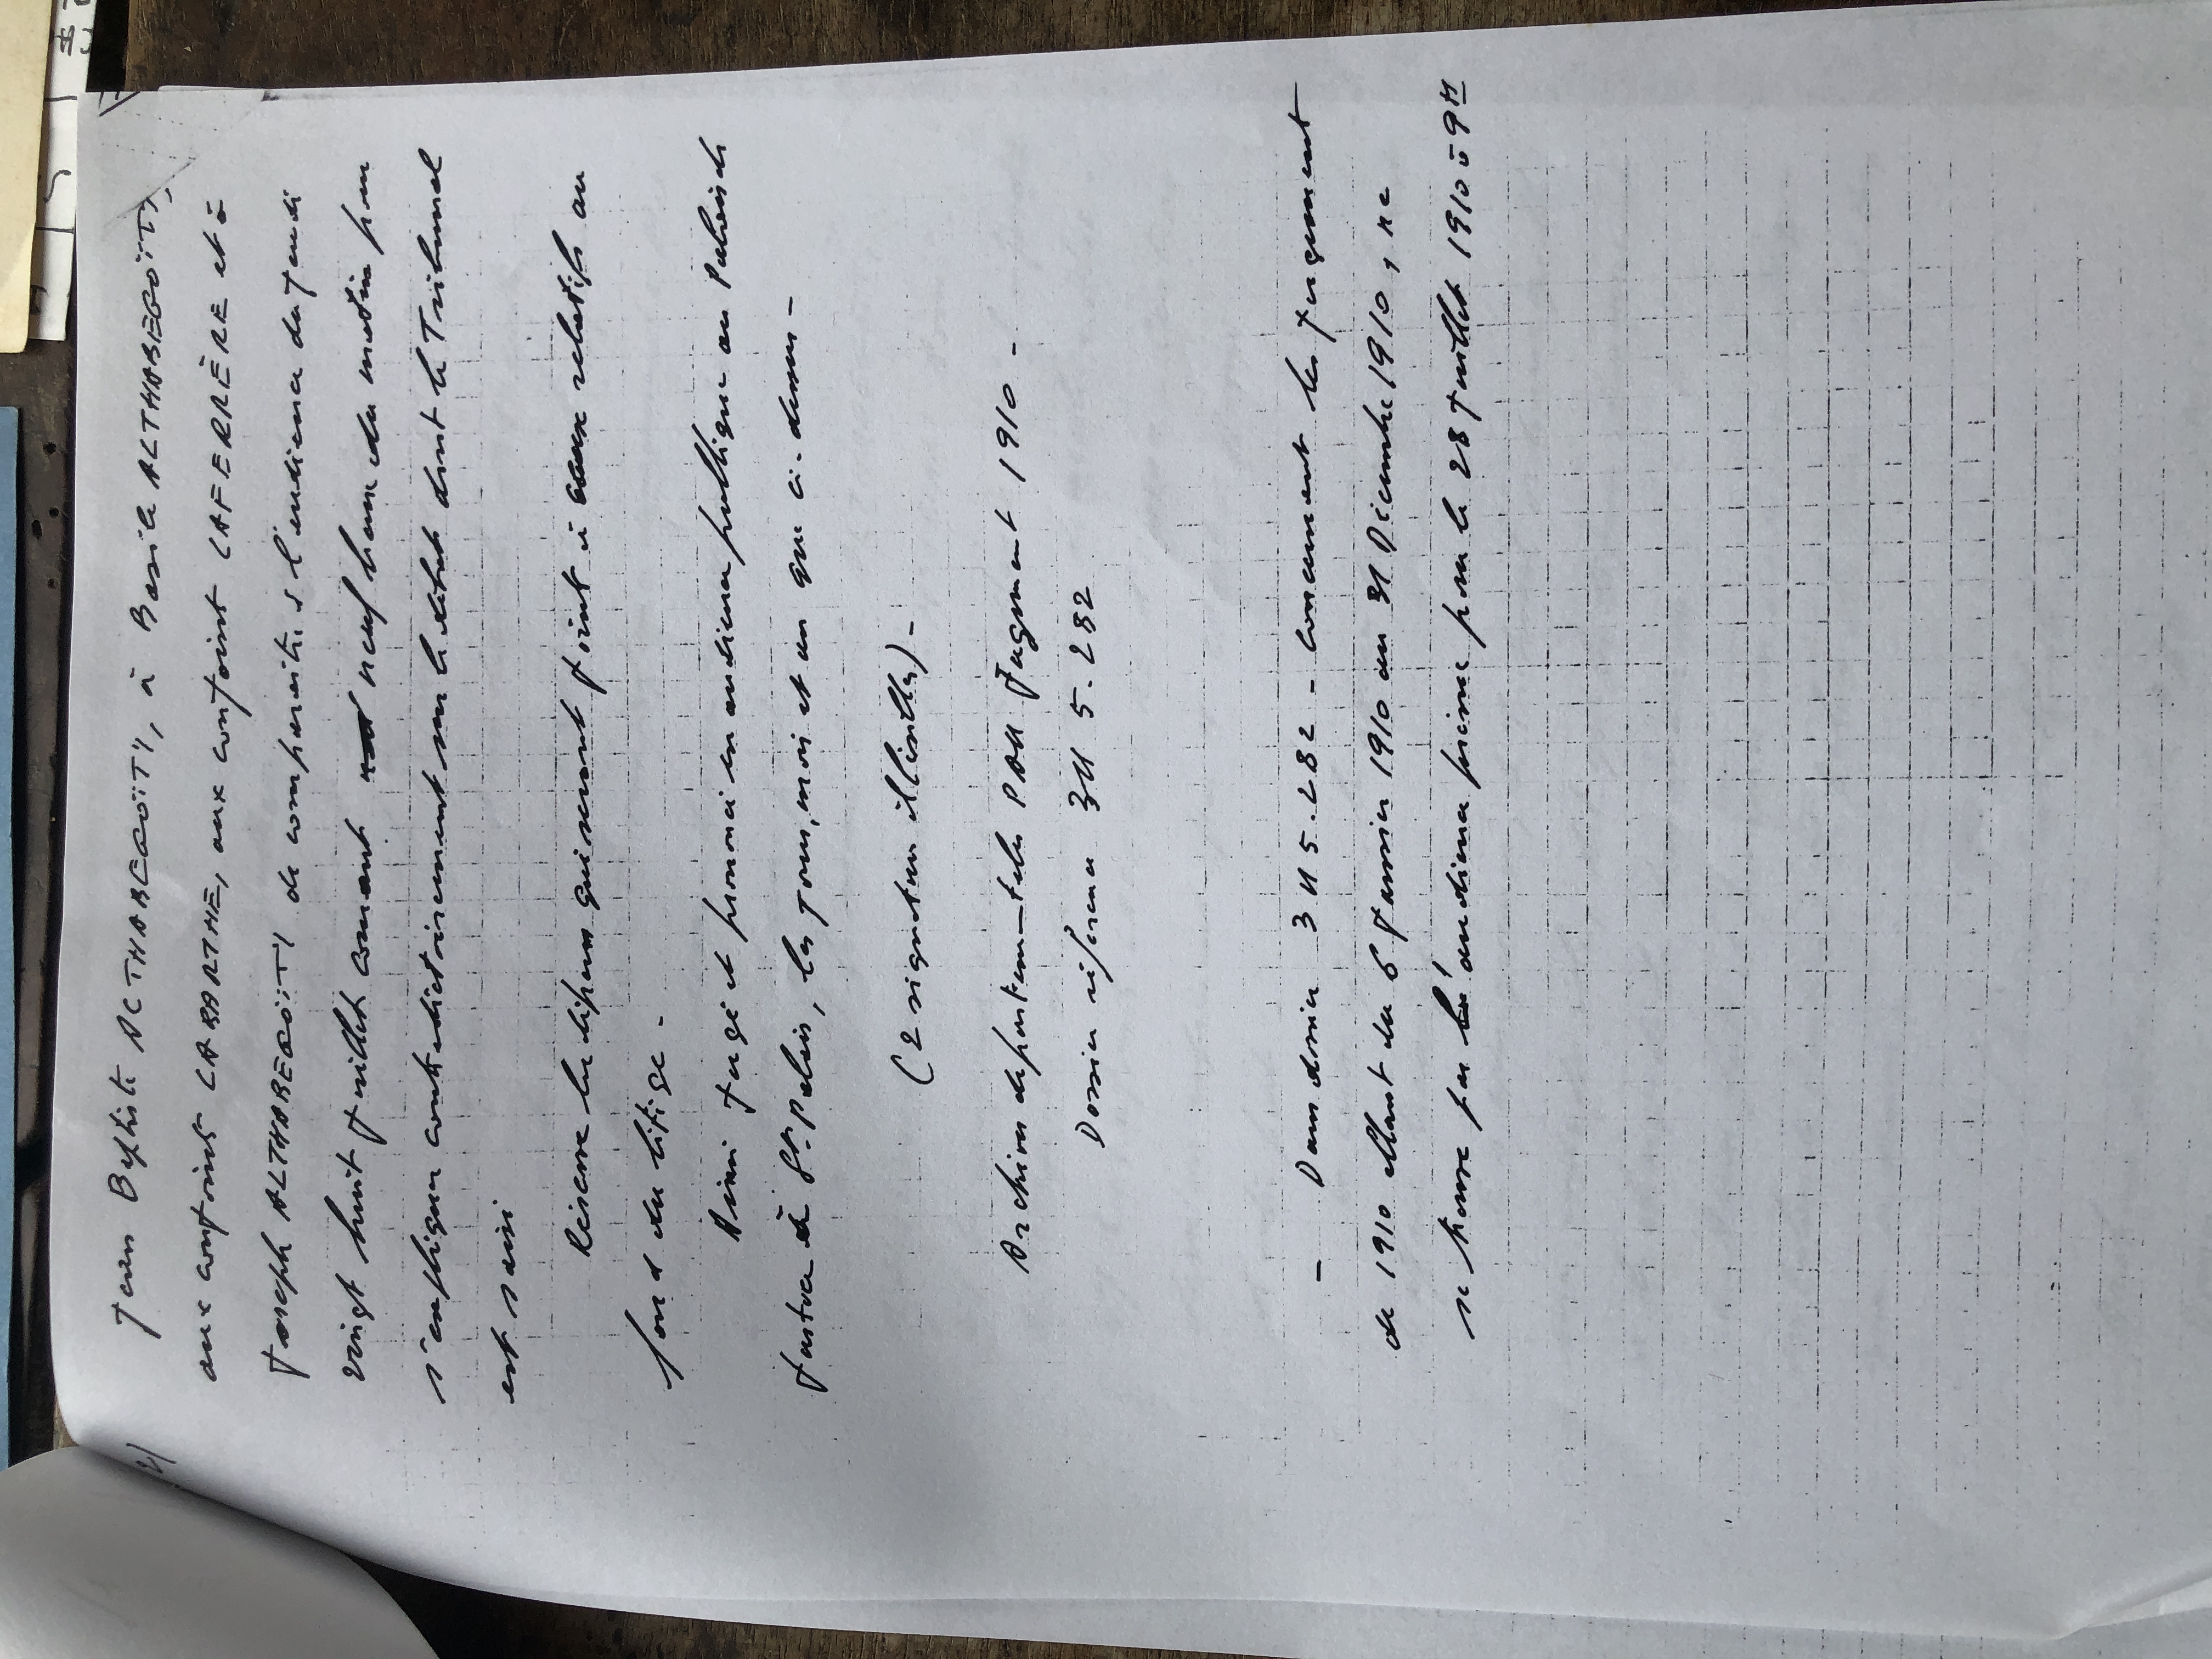 3/
Jean Baptiste ALTHABEGOÏTY, à Basile ALTHABEGOÏTY,
aux conjoints LABARTHE, aux conjoint LAFERRÈRE et à
Joseph ALTHABEGOÏTY de comparaitre à l'audience du jeudi
vingt huit juillet courant neuf heure du matin pour
s'expliquer contradictoirement sur le litige dont le Tribunal
est saisi
Réserve les dépens qui seront joint à ceux relatifs au
fond du litige -
Ainsi jugé et prononcé en audience publique au Palais de
Justice à St-Palais, les jour, mois et an que ci-dessus -
(2 signatures illisibles) -
Archives départementales PAU Jugement 1910 -
Dossier référence 3U 5. 282
- Dans dossier 3 U 5. 282 - concernant les jugement
de 1910 allant du 6 Janvier 1910 au 31 Décembre 1910, ne
se trouve pas l'audience prévue pour le 28 Juillet 1910 à 9 H